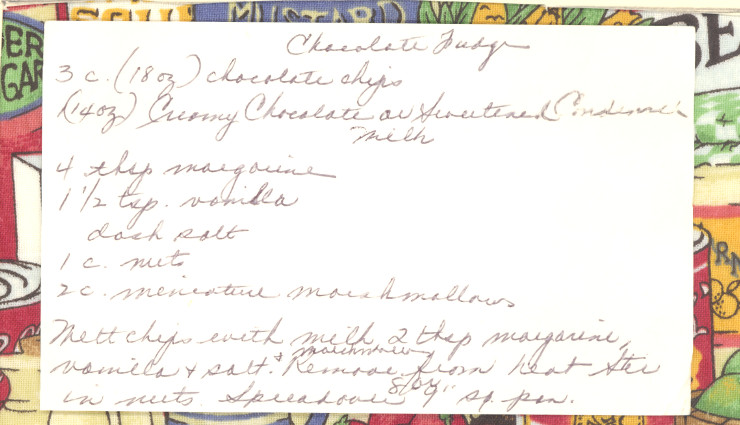 MUSTARD
ER
GAR
Chocolate Fudge
3 c. (18 oz) chocolate chips
(14 oz) Creamy Chocolate or Sweetened
Milk
4 tbsp margarine
1 1/2 tsp. vanilla
dash salt
1 c. nuts
2 c. meniature marshmallows
Melt chips with milk, 2 tbsp margarine,
vanilla & salt. & marshmallows Remove from heat Stir
in nuts. Spread over 8 or 9" sq. pan.